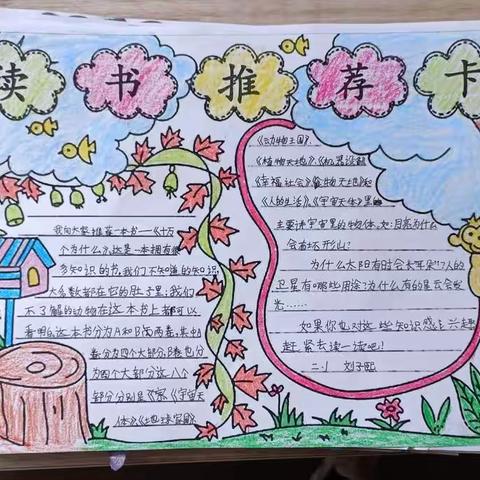 读书推荐卡
我向大家推荐一本书——《十万
个为什么》,这是一本拥有很
多知识的书,我们不知道的知识,
大多数都在它的肚子里;我们
不了解的动物在这本书上都可以
看明白,这本书分为A和B两卷,其中A
卷分为四个大部分,B卷也分
为四个大部分,这八个
部分分别是《宇宙天
体》《地球家园》
《动物王国》、
《植物天地》、《机器
《幸福社会》
《人的生活》、《宇宙天体》里的
主要讲宇宙里的物体,如:月亮为什么
会有环形山?
为什么太阳有时会长"耳朵"?人的
卫星有哪些用途?为什么有的星云会发
光……
如果你也对这些知识感兴趣
赶紧去读一读吧!
二.1 刘子熙